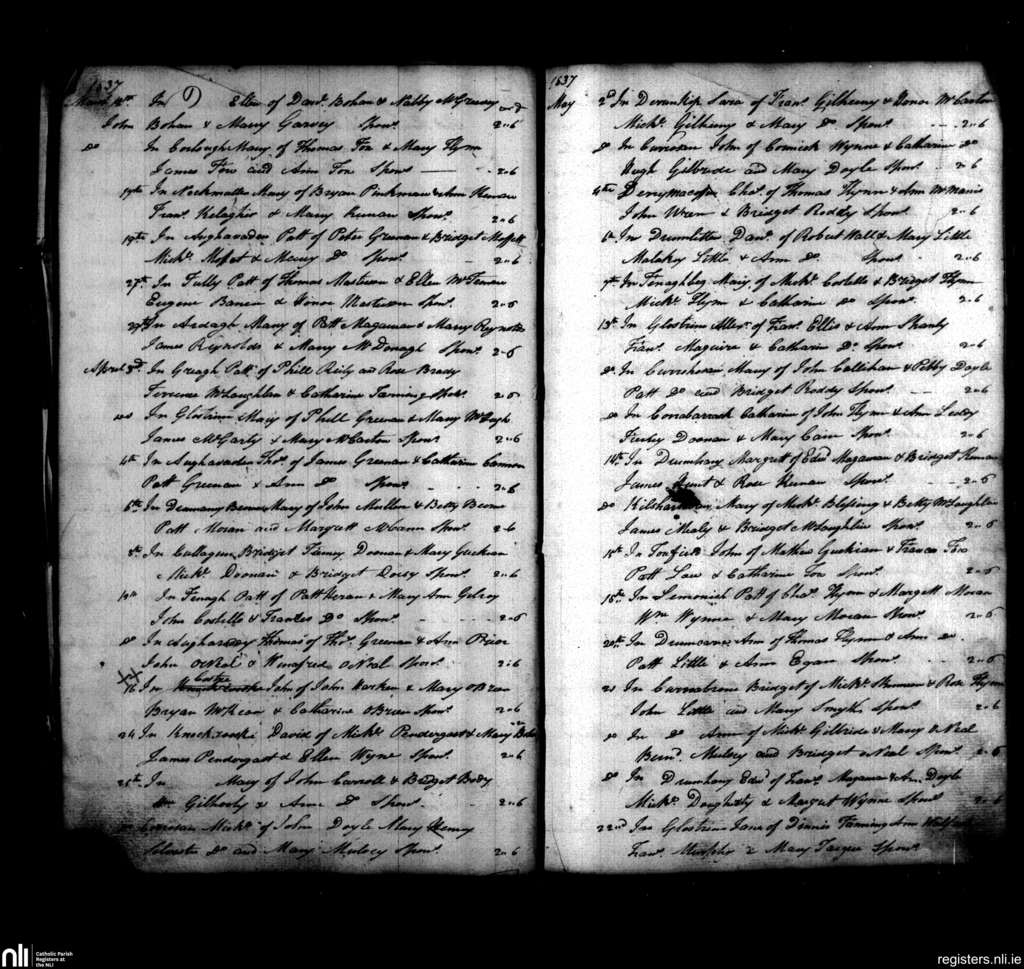 1837
March 12th In Ellen of Danl. Bohan & Nabby McGreevy
John Bohan & Mary Garvey Spons. 2"6
do In Corlough Mary of Thomas Fox & Mary Flynn
James Fox and Ann Fox Spons. 2"6
17th In Mary of Bryan & Ann Keenan
Frans. Kelagher & Mary Keenan Spons. 2"6
19th In Aughavadden Patt of Peter Greenan & Bridget Moffett
Michl. Moffet & Mary Do Spons. 2"6
27th In Tully Patt of Thomas Masterson & Ellen McTernan
Eugene & Honor Masterson Spons. 2"6
29th In Ardagh Mary of Patt Magawran & Mary Reynolds
James Reynolds & Mary McDonagh Spons. 2"6
April 3rd. In Greagh Patt of Phill Reily and Rose Brady
Terrence McLaughlin & Catharine Fanning Spons. 2"6
do In Glostrinn Mary of Phill Greenan & Mary McHugh
James McGarty & Mary McCarton Spons. 2"6
4th In Aughavaden Thos. of James Greenan & Catharine Cannon
Patt Greenan & Ann Do Spons. 2"6
6th In Drumany Beirne Mary of John Mullen & Betty Beirne
Patt Moran and Margrett McCann Spons. 2"6
8th In Bridget Doonan & Mary Guckian
Michl. Doonan & Bridget Dorsy Spons. 2"6
10th In Fenagh Patt of Patt & Mary Ann Gilroy
John Costello & Frances Do Spons. 2"6
do In Aughavaddy Thomas of Thos. Greenan & Ann Prior
John ONeal & Winafred ONeal Spons. 2"6
16 In John of John Harken & Mary OBrien
Bryan McKeon & Catharine OBrien Spons. 2"6
24 In Knockrooski David of Michl. Pendergast & Mary
James Pendergast & Ellen Wyne Spons. 2"6
25th In Mary of John Carroll & Bridget Body
Wm Gilhooly & Ann Do Spons. 2"6
Corroson Michl. of John Doyle Mary Henry
Do and Mary Mulvey Spons. 2"6
1837
May 2d In Derrinkip Sara of Frans. Gilheeny & Honor McCarton
Michl. Gilheeny & Mary Do Spons. 2"6
do In John of Cormick Wynne & Catharine Do
Hugh Gilbride and Mary Doyle Spons. 2"6
4th Derrymacoffin Chas. of Thomas Flynn & Ann McManis
John Wren & Bridget Roddy Spons. 2"6
In Drumlitten Danl. of Robert Wall & Mary Little
Malakey Little & Ann Do Spons. 2"6
9th In Fenaghbeg Mary of Michl. Costello & Bridget Flynn
Michl. Flynn & Catharine Do Spons. 2"6
13th In Glostrinn Allexr. of Frans. Ellis & Ann Shanly
Frans. Maguire & Catharine Do Spons. 2"6
do In Mary of John Callihan & Peby Doyle
Patt Do and Bridget Roddy Spons. 2"6
do In Corrabarrack Catharine of John Flynn & Ann
Doonan & Mary Cain Spons. 2"6
14th In Drumhany Margrett of Edwd. Magawran & Bridget Keenan
James & Rose Keenan Spons. 2"6
do Mary of Michl. Blessing & Betty McLaughlin
James Mealy & Bridget McLaughlin Spons. 2"6
15th In Tonfield John of Mathew Guckian & Frances Fox
Patt Law & Catharine Fox Spons. 2"6
18th In Lemonish Patt of Chas. Flynn & Margett Moran
Wm Wynne & Mary Moran Spons. 2"6
20th In Drumcorra Ann of Thomas Flynn & Ann do
Patt Little & Ann Egan Spons. 2"6
21 In Bridget of Michl. & Rose Flynn
John Little and Mary Smyth Spons. 2"6
do In Do Ann of Michl. Gilbride & Mary ONeal
Bernd. Mulvey and Bridget oNeal Spons. 2"6
do In Drumhany Edwd of Frans. Magawran & Ann Doyle
Michl. Dougherty & Margret Wynne Spons. 2"6
22nd In Glostrinn Jane of Dinnis Fanning Ann
Frans. Murphy & Mary Spons.
nli
Catholic Parish
Registers at
the NLI
registers.nli.ie